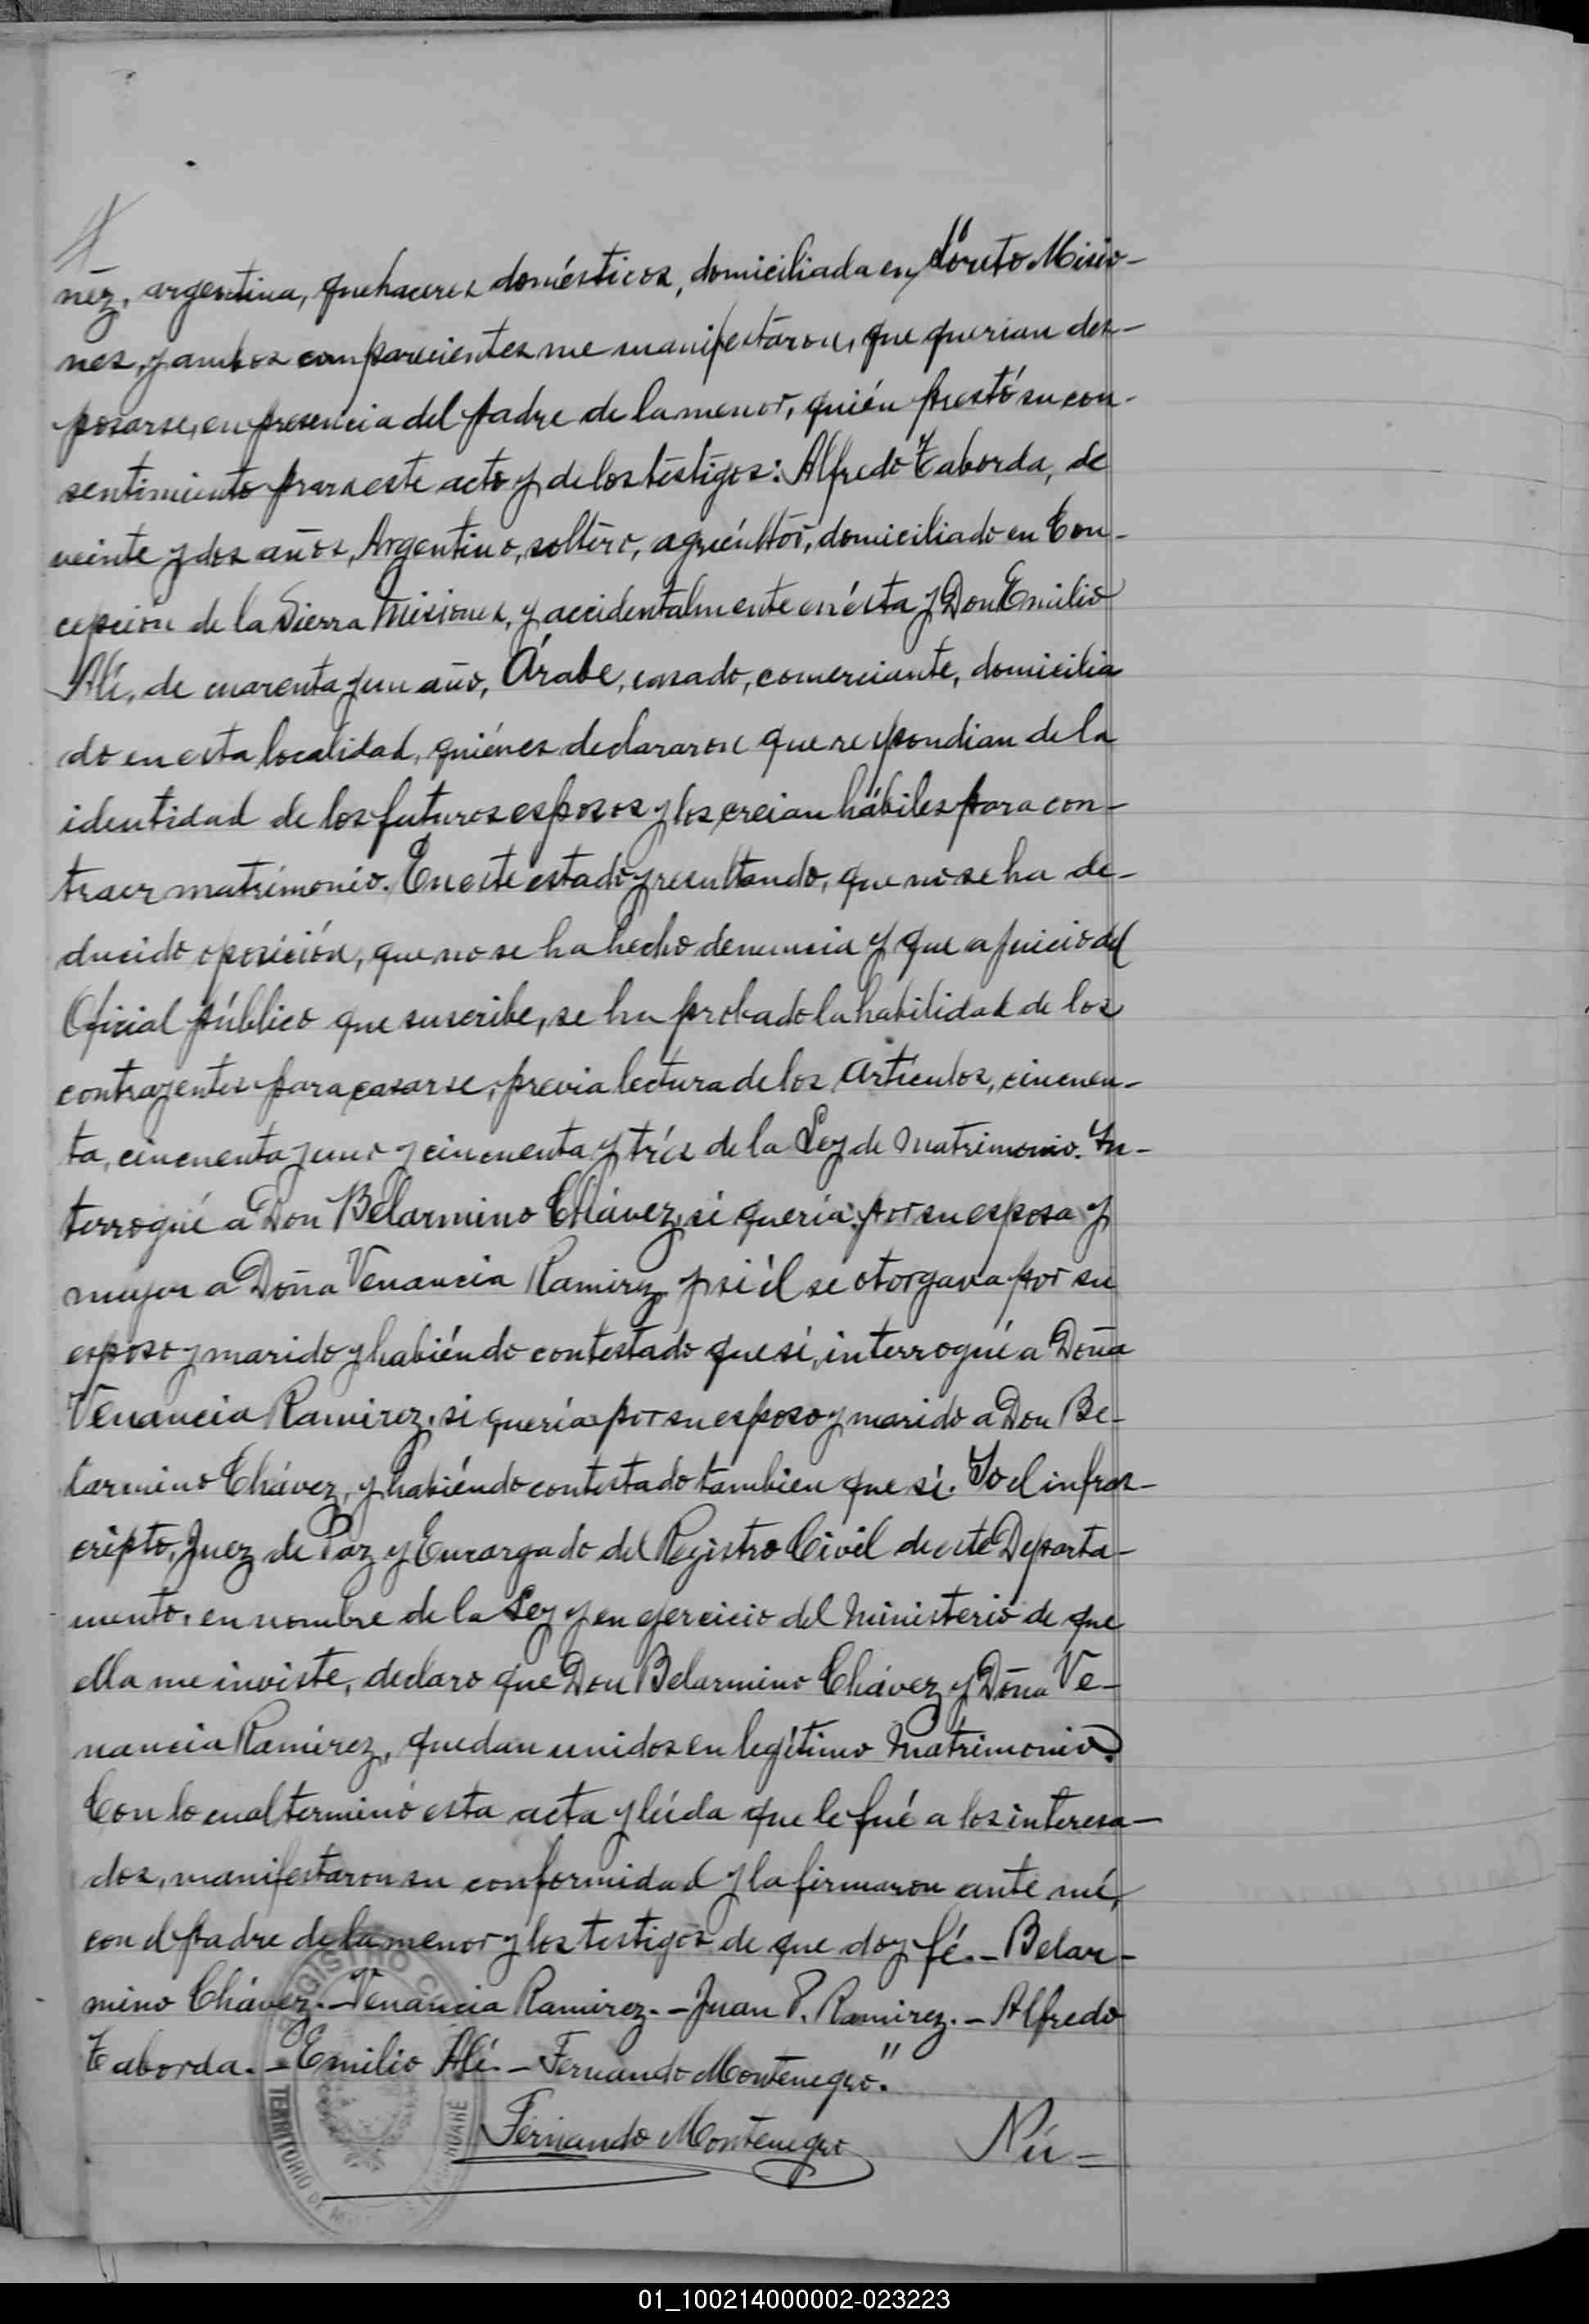 nez, argentina, quehaceres domésticos, domiciliada en Loreto Misio-
nes, y ambos comparecientes me manifestaron, que querian des-
posarse, en presencia del padre de la menor, quién prestó su con-
sentimiento para este acto y de los testigos: Alfredo Taborda, de
veinte y dos años, Argentino, soltero, agricultor, domiciliado en Con-
cepción de la Sierra Misiones, y accidentalmente en ésta y Don Emilio
Alí, de cuarenta y un año, Árabe, casado, comerciante, domicilia
do en esta localidad, quiénes declararon que respondian de la
identidad de los futuros esposos y los creian hábiles para con-
traer matrimonio. En este estado y resultando, que no se ha de-
ducido oposición, que no se ha hecho denuncia y que a juicio del
Oficial público que suscribe, se ha probado la habilidad de los
contrayentes para casarse, previa lectura de los Artículos, cincuen-
ta, cincuenta y uno y cincuenta y trés de la Ley de Matrimonio. In-
terrogué a Don Belarmino Chávez, si quería por su esposa y
mujer a Doña Venancia Ramirez y si él se otorgava por su
esposo y marido y habiéndo contestado que sí, interrogué a Doña
Venancia Ramirez, si quería por su esposo y marido a Don Be-
larmino Chávez, y habiéndo contestado tambien que sí. Yo el infras-
cripto, Juez de Paz y Encargado del Registro Civil de este Departa-
mento, en nombre de la Ley y en ejercicio del Ministerio de que
ella me inviste, declaro que Don Belarmino Chávez y Doña Ve-
nancia Ramírez, quedan unidos en legítimo Matrimonio.
Con lo cual terminó esta acta y leída que le fué a los interesa-
dos, manifestaron su conformidad y la firmaron ante mí,
con el padre de la menor y los testigos de que doy fé. - Belar-
mino Chávez. - Venancia Ramirez. - Juan P. Ramirez. - Alfredo
Taborda. - Emilio Alí. - Fernando Montenegro."
Fernando Montenegro Nú=
REGISTRO C
TERRITORIO DE
01_100214000002-023223